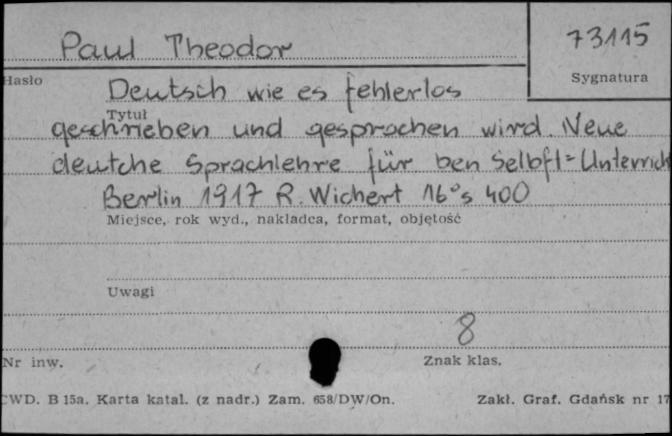 Paul Theodor
73115
Hasło
Sygnatura
Deutsch wie es fehlerlos
Tytuł
geschrieben und gesprochen wird. Neue
deutche Sprachlehre für ben Selbft=Unterrich
Berlin 1917 R. Wichert 16° s 400
Miejsce, rok wyd., nakładca, format, objętość
Uwagi
8
Nr inw.
Znak klas.
CWD. B 15a. Karta katal. (z nadr.) Zam. 658/DW/On.
Zakł. Graf. Gdańsk nr 17